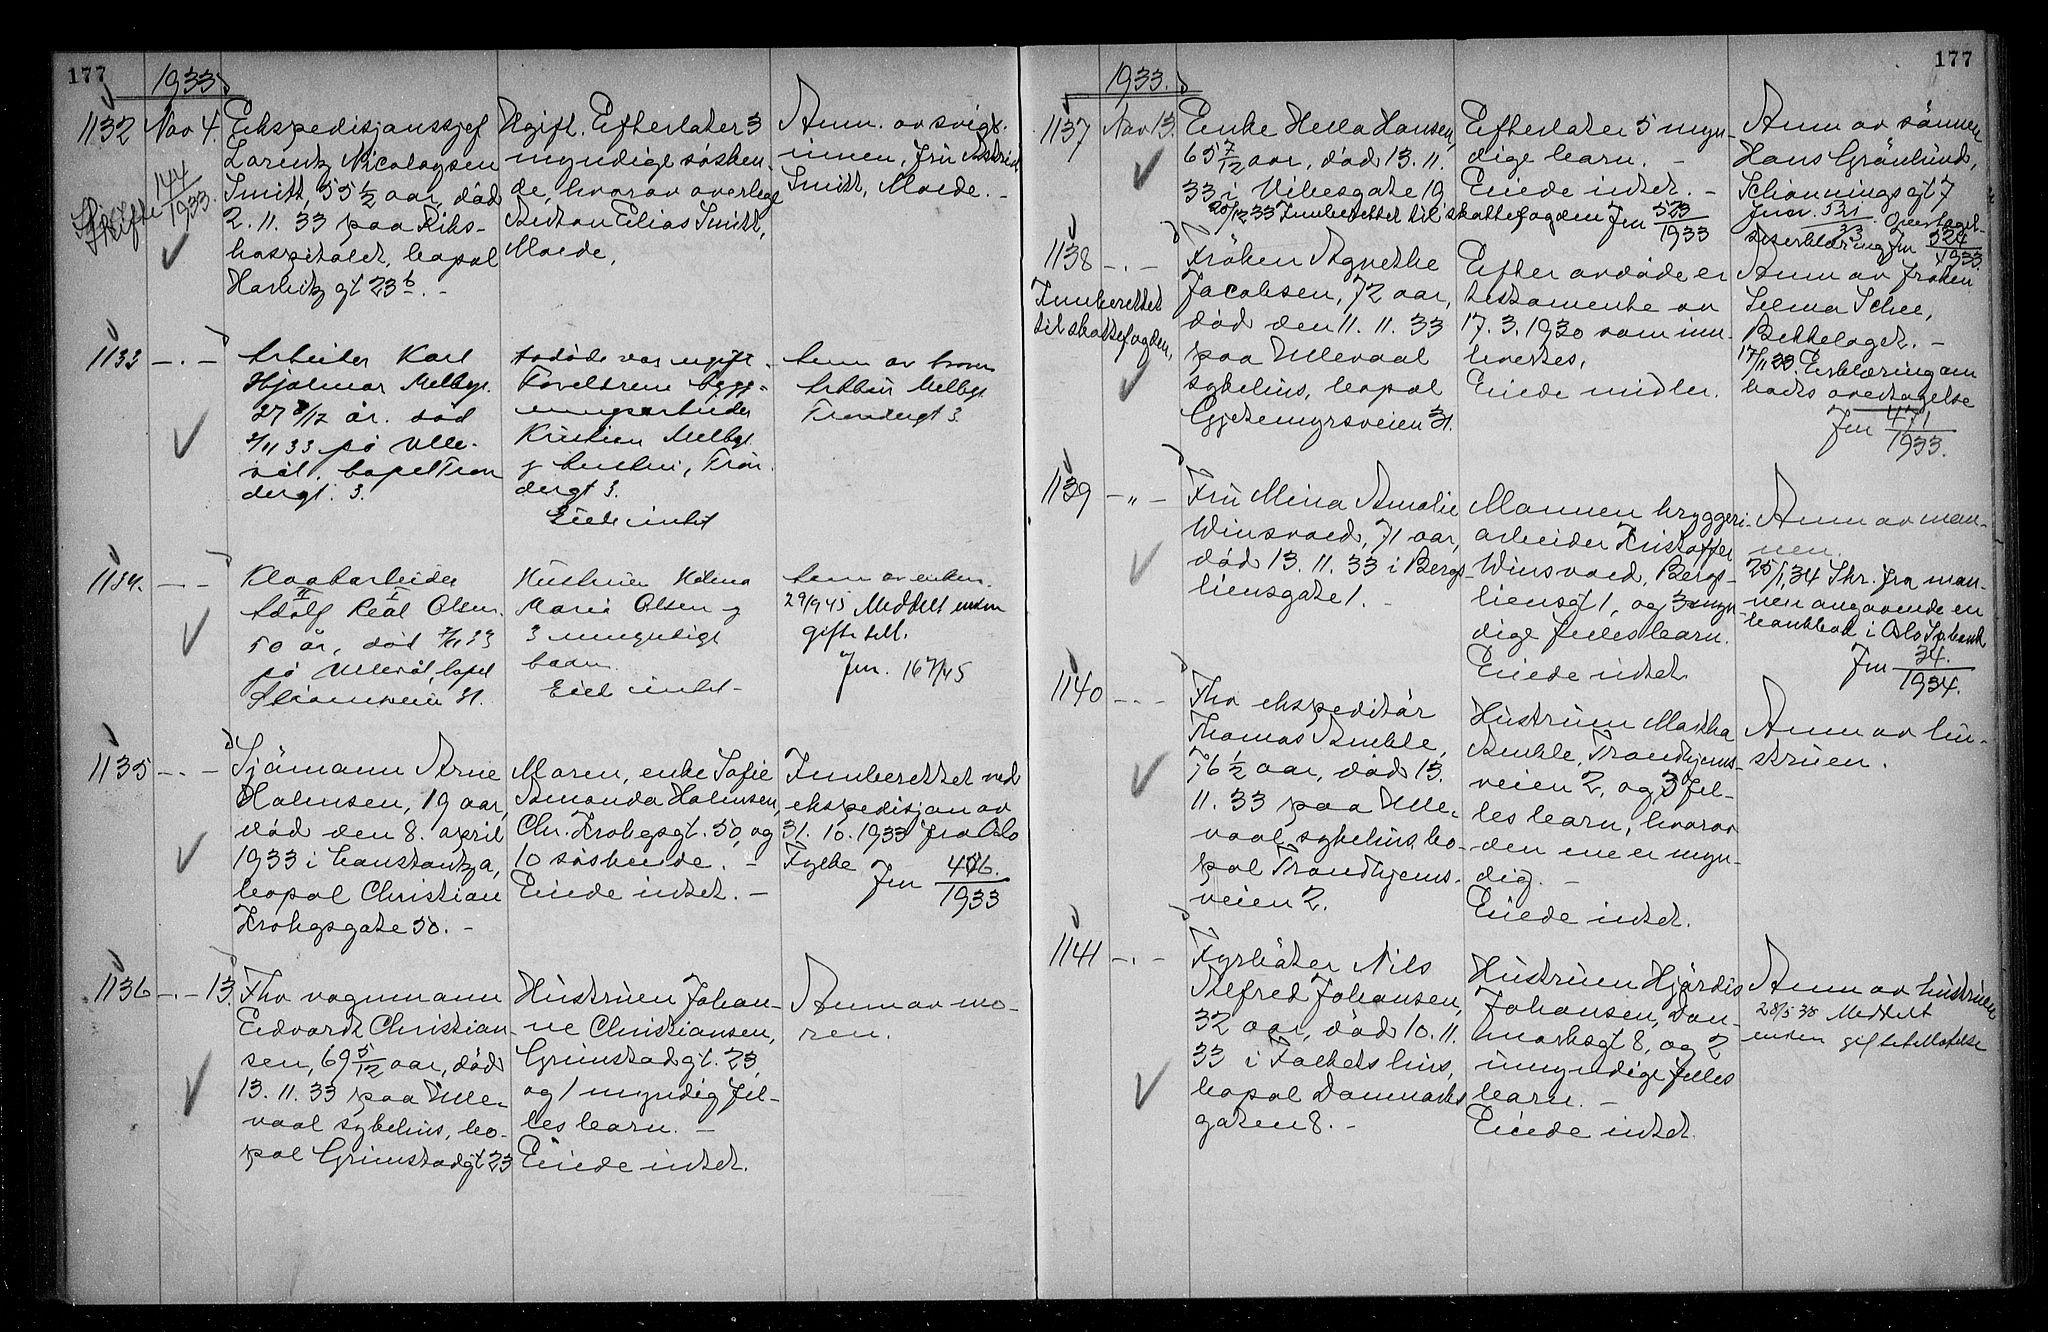 177
1933
1132 Nov 4. Ekspedisjonssjef
Lorentz Nicolaysen
Smitt, 55 1/2 aar, død
2. 11. 33 paa Riks-
hospitalet, bopæl
gt 23 b. -
Skifte 144/1933.
Ugift. Efterlater 3
myndige søsken-
de, hvorav overlege
Anton Elias Smitt,
Molde.
Anm. av svigr.
innen, fru Astrid
Smitt, Molde. -
1133 -.- Arbeider Karl
Hjalmar Melbye.
27 8/12 år. død
/11 33 på Ulle-
vål. bopel Tron
dergt. 3.
Avdøde var ugift.
Foreldrene bygg-
ningsarbeider
Kristian Melbye
og hustru, Tron
dergt 3.
Eiet intet
Anm av broren
Melbye
Trondergt 3.
1134. - - Kloakarbeider
II I
Adolf Real Olsen.
50 år, død /11 33
på Ullevål, bopel
31.
Hustruen
Marie Olsen og
3 umyndige
barn.
Eiet intet -
Anm av enken.
29/9 45 Meddelt enken
gifte till.
Jnr. 167/45
1135 -.- Sjømann Arne
Holmsen, 19 aar,
død den 8. april
1933 i Constantza,
bopæl Christian
Krohgsgate 50. -
Moren, enke Sofie
Amanda Holmsen,
Chr. Krohgsgt. 50, og
10 søskende. -
Eiede intet. -
Innberettet ved
ekspedisjon av
31. 10. 1933 fra Oslo
Fylke
Jnr 1933
1136 -.- 13. Fhv vognmann
Edvardt Christian-
sen, 69 5/12 aar, død
13. 11. 33 paa Ulle-
vaal sykehus, bo-
pæl Grimstadgt 23
Hustruen Johan-
ne Christiansen,
Grimstadgt. 23,
og 1 myndig fel-
les barn. -
Eiede intet.
Anm av mo-
ren.
177
1933.
1137 Nov 13. Enke Hella Hansen,
65 7/12 aar, død 13. 11.
33 i Vibesgate 19
20/12 33 Innberettet til skattefogden Jnr 523/1933
Efterlater 5 myn-
dige barn. -
Eiede intet. -
Anm av sønnen
Hans Grönlund,
Schønningsgt 7
Jnr. 521/33 Overtagel-
seserklæring Jnr 524/1933.
1138 -.- Frøken Agnethe
Jacobsen, 72 aar,
død den 11. 11. 33
paa Ullevaal
sykehus, bopæl
Gjetemyrsveien 31.
Innberettet
til skattefogden.
Efter avdøde er
testamente av
17. 3. 1930 som inn-
levertes.
Eiede midler.
Anm av frøken
Selma Schee,
Bekkelaget. -
17/11 33. Erklæring om
boets overtagelse
Jnr 471/1933.
1139 -"- Fru Mina Amalie
Winsvold, 71 aar,
død 13. 11. 33 i Bergs-
liensgate 1. -
Mannen bryggeri-
arbeider Kristoffer
Winsvold, Bergs-
liensgt 1, og 3 myn-
dige felles barn.
Eiede intet
Anm av man-
nen.
25/1, 34 Skr. fra man-
nen angaaende en
bankbok i Oslo Spbank
Jnr 34./1934.
1140 -.- Fhv ekspeditør
Thomas Amble,
76 1/2 aar, død 13.
11. 33 paa Ulle-
vaal sykehus, bo-
pæl Trondhjems-
veien 2.
Hustruen Martha
Amble, Trondhjems-
veien 2, og 3 fel-
les barn, hvorav
den ene er myn-
dig. -
Eiede intet.
Anm av hu-
struen.
1141 -.- Fyrbøter Nils
Alfred Johansen,
32 aar, død 10. 11.
33 i Folkets hus,
bopæl Danmarks
gaten 8. -
Hustruen Hjördis
Johansen, Dan-
marksgt 8, og 2
umyndige felles
barn. -
Eiede intet.
Anm av hustruen
28/5 35 Meddelt
enken giftetillatelse